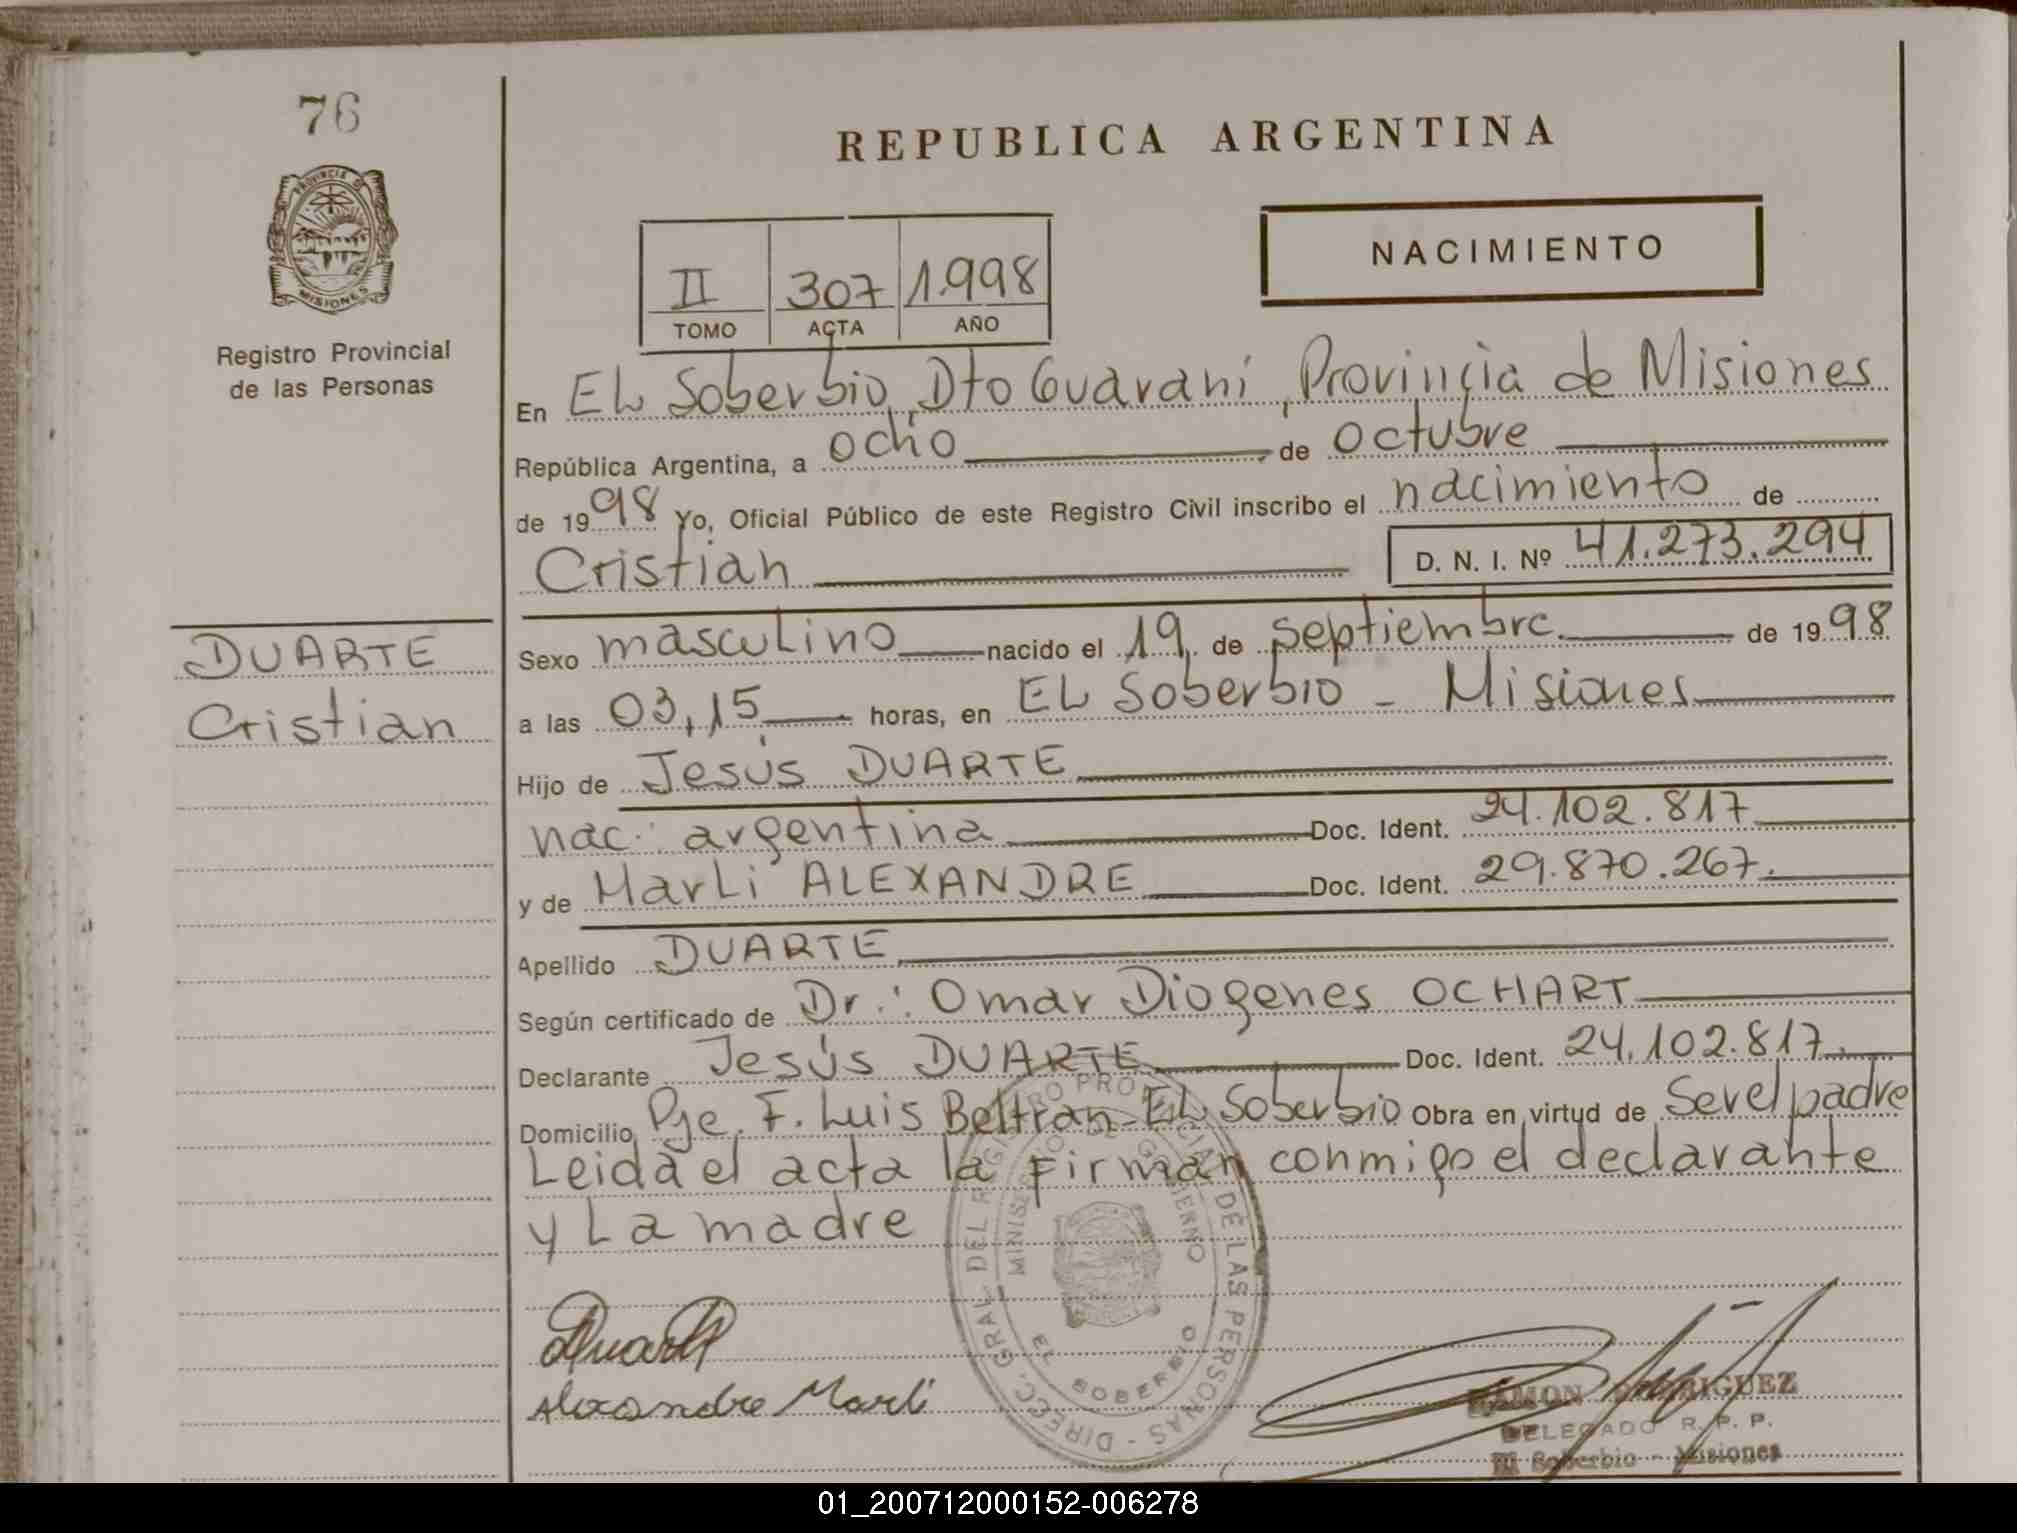 76
PROVINCIA DE
MISIONES
Registro Provincial
de las Personas
DUARTE
Cristian
REPUBLICA ARGENTINA
II 307 1.998
TOMO ACTA AÑO
NACIMIENTO
En EL Soberbio, Dto Guaraní, Provincia de Misiones
República Argentina, a ocho de octubre
de 1998 Yo, Oficial Público de este Registro Civil inscribo el nacimiento de
Cristian D. N. I. Nº 41.273.294
Sexo masculino nacido el 19 de septiembre de 1998
a las 03,15 horas, en EL Soberbio - Misiones
Hijo de Jesús DUARTE
nac: argentina Doc. Ident. 24.102.817
y de Marli ALEXANDRE Doc. Ident. 29.870.267.
Apellido DUARTE
Según certificado de Dr.: Omar Diogenes OCHART
Declarante Jesús DUARTE Doc. Ident. 24.102.817.
Domicilio Pje. F. Luis Beltran - EL Soberbio Obra en virtud de Ser el padre
Leida el acta la firman conmigo el declarante
y La madre
DIREC. GRAL. DEL REGISTRO PROVINCIAL DE LAS PERSONAS -
MINISTERIO DE GOBIERNO
EL SOBERBIO
Duarte
Alexandre Marli
RAMON RODRIGUEZ
DELEGADO R. P. P.
El Soberbio - Misiones
01_200712000152-006278